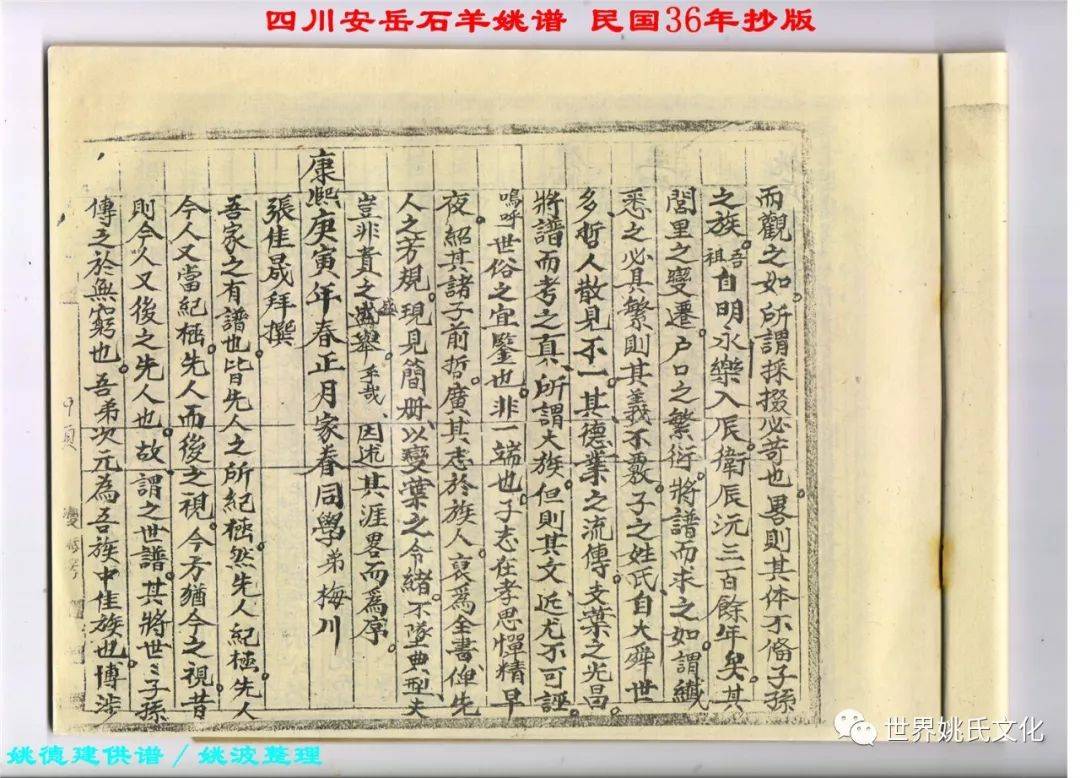 四川安岳石羊姚谱 民国36年抄版
而觀之如。所謂採掇必苛也。畧則其体不偹子孫
之族。吾祖自明永樂入辰。衛辰沅三百餘年矣。其
閭里之變遷。户口之繁衍。將譜而求之。如謂纖
悉之必具繁則其義不覈。子之姓氏。自大舜世
多哲人散見不一。其德業之流傳。支葉之光昌。
將譜而考之真。所謂大族。但則其文。近尤不可誣。
嗚呼世俗之宜鑒也。非一端也。子志在孝思憚精早
夜。紹其諸子前哲。廣其志於族人。裒為全書。俾先
人之芳規。現見簡册。以變葉之令緒。不墜典型。夫
豈非貴之盛舉乎哉。因述其涯畧而為序。
康熙庚寅年春正月家眷同學弟梅川
張佳晟拜撰
吾家之有譜也。皆先人之所紀極。然先人紀極。先人
今人又當紀極先人而後之視。今方猶今之視昔
則今人又後之先人也。故謂之世譜。其將世ミ子孫
傳之於無窮也。吾弟次元為吾族中佳族也。博涉
姚德建供谱/姚波整理
世界姚氏文化